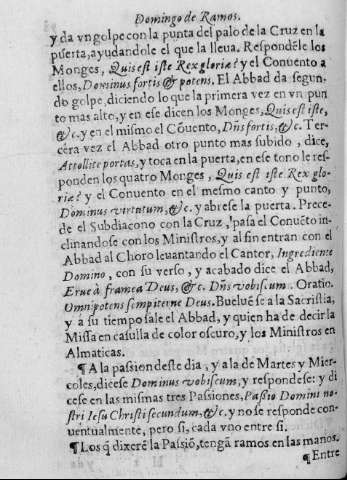 Domingo de Ramos.
y da vn golpe con la punta del palo de la Cruz en la
puerta, ayudandole el que la lleua. Respondēle los
Monges, Quis est iste Rex gloriæ? y el Conuento a
ellos, Dominus fortis & potens. El Abbad da segun-
do golpe, diciendo lo que la primera vez en vn pun
to mas alto, y en ese dicen los Monges, Quis est iste,
&c. y en el mismo el Cōuento, Dn̄s fortis, &c. Ter-
cera vez el Abbad otro punto mas subido, dice,
Attollite portas, y toca en la puerta, en ese tono le res-
ponden los quatro Monges, Quis est iste Rex glo-
riæ? y el Conuento en el mesmo canto y punto,
Dominus virtutum, &c. y abrese la puerta. Prece-
de el Subdiacono con la Cruz, pasa el Conuēto in-
clinandose con los Ministros, y al fin entran con el
Abbad al Choro leuantando el Cantor, Ingrediente
Domino, con su verso, y acabado dice el Abbad,
Erue à framea Deus, &c. Dn̄s vobiscum. Oratio.
Omnipotens sempiterne Deus. Bueluēse a la Sacristia,
y à su tiempo sale el Abbad, y quien ha de decir la
Missa en casulla de color oscuro, y los Ministros en
Almaticas.
¶ A la passion deste dia, y a la de Martes y Mier-
coles, dicese Dominus vobiscum, y respondese: y di
cese en las mismas tres Passiones, Passio Domini no-
stri Iesu Christi secundum, &c. y no se responde con-
uentualmente, pero si, cada vno entre si.
¶ Los q̄ dixerē la Passiō, tengā ramos en las manos.
¶ Entre